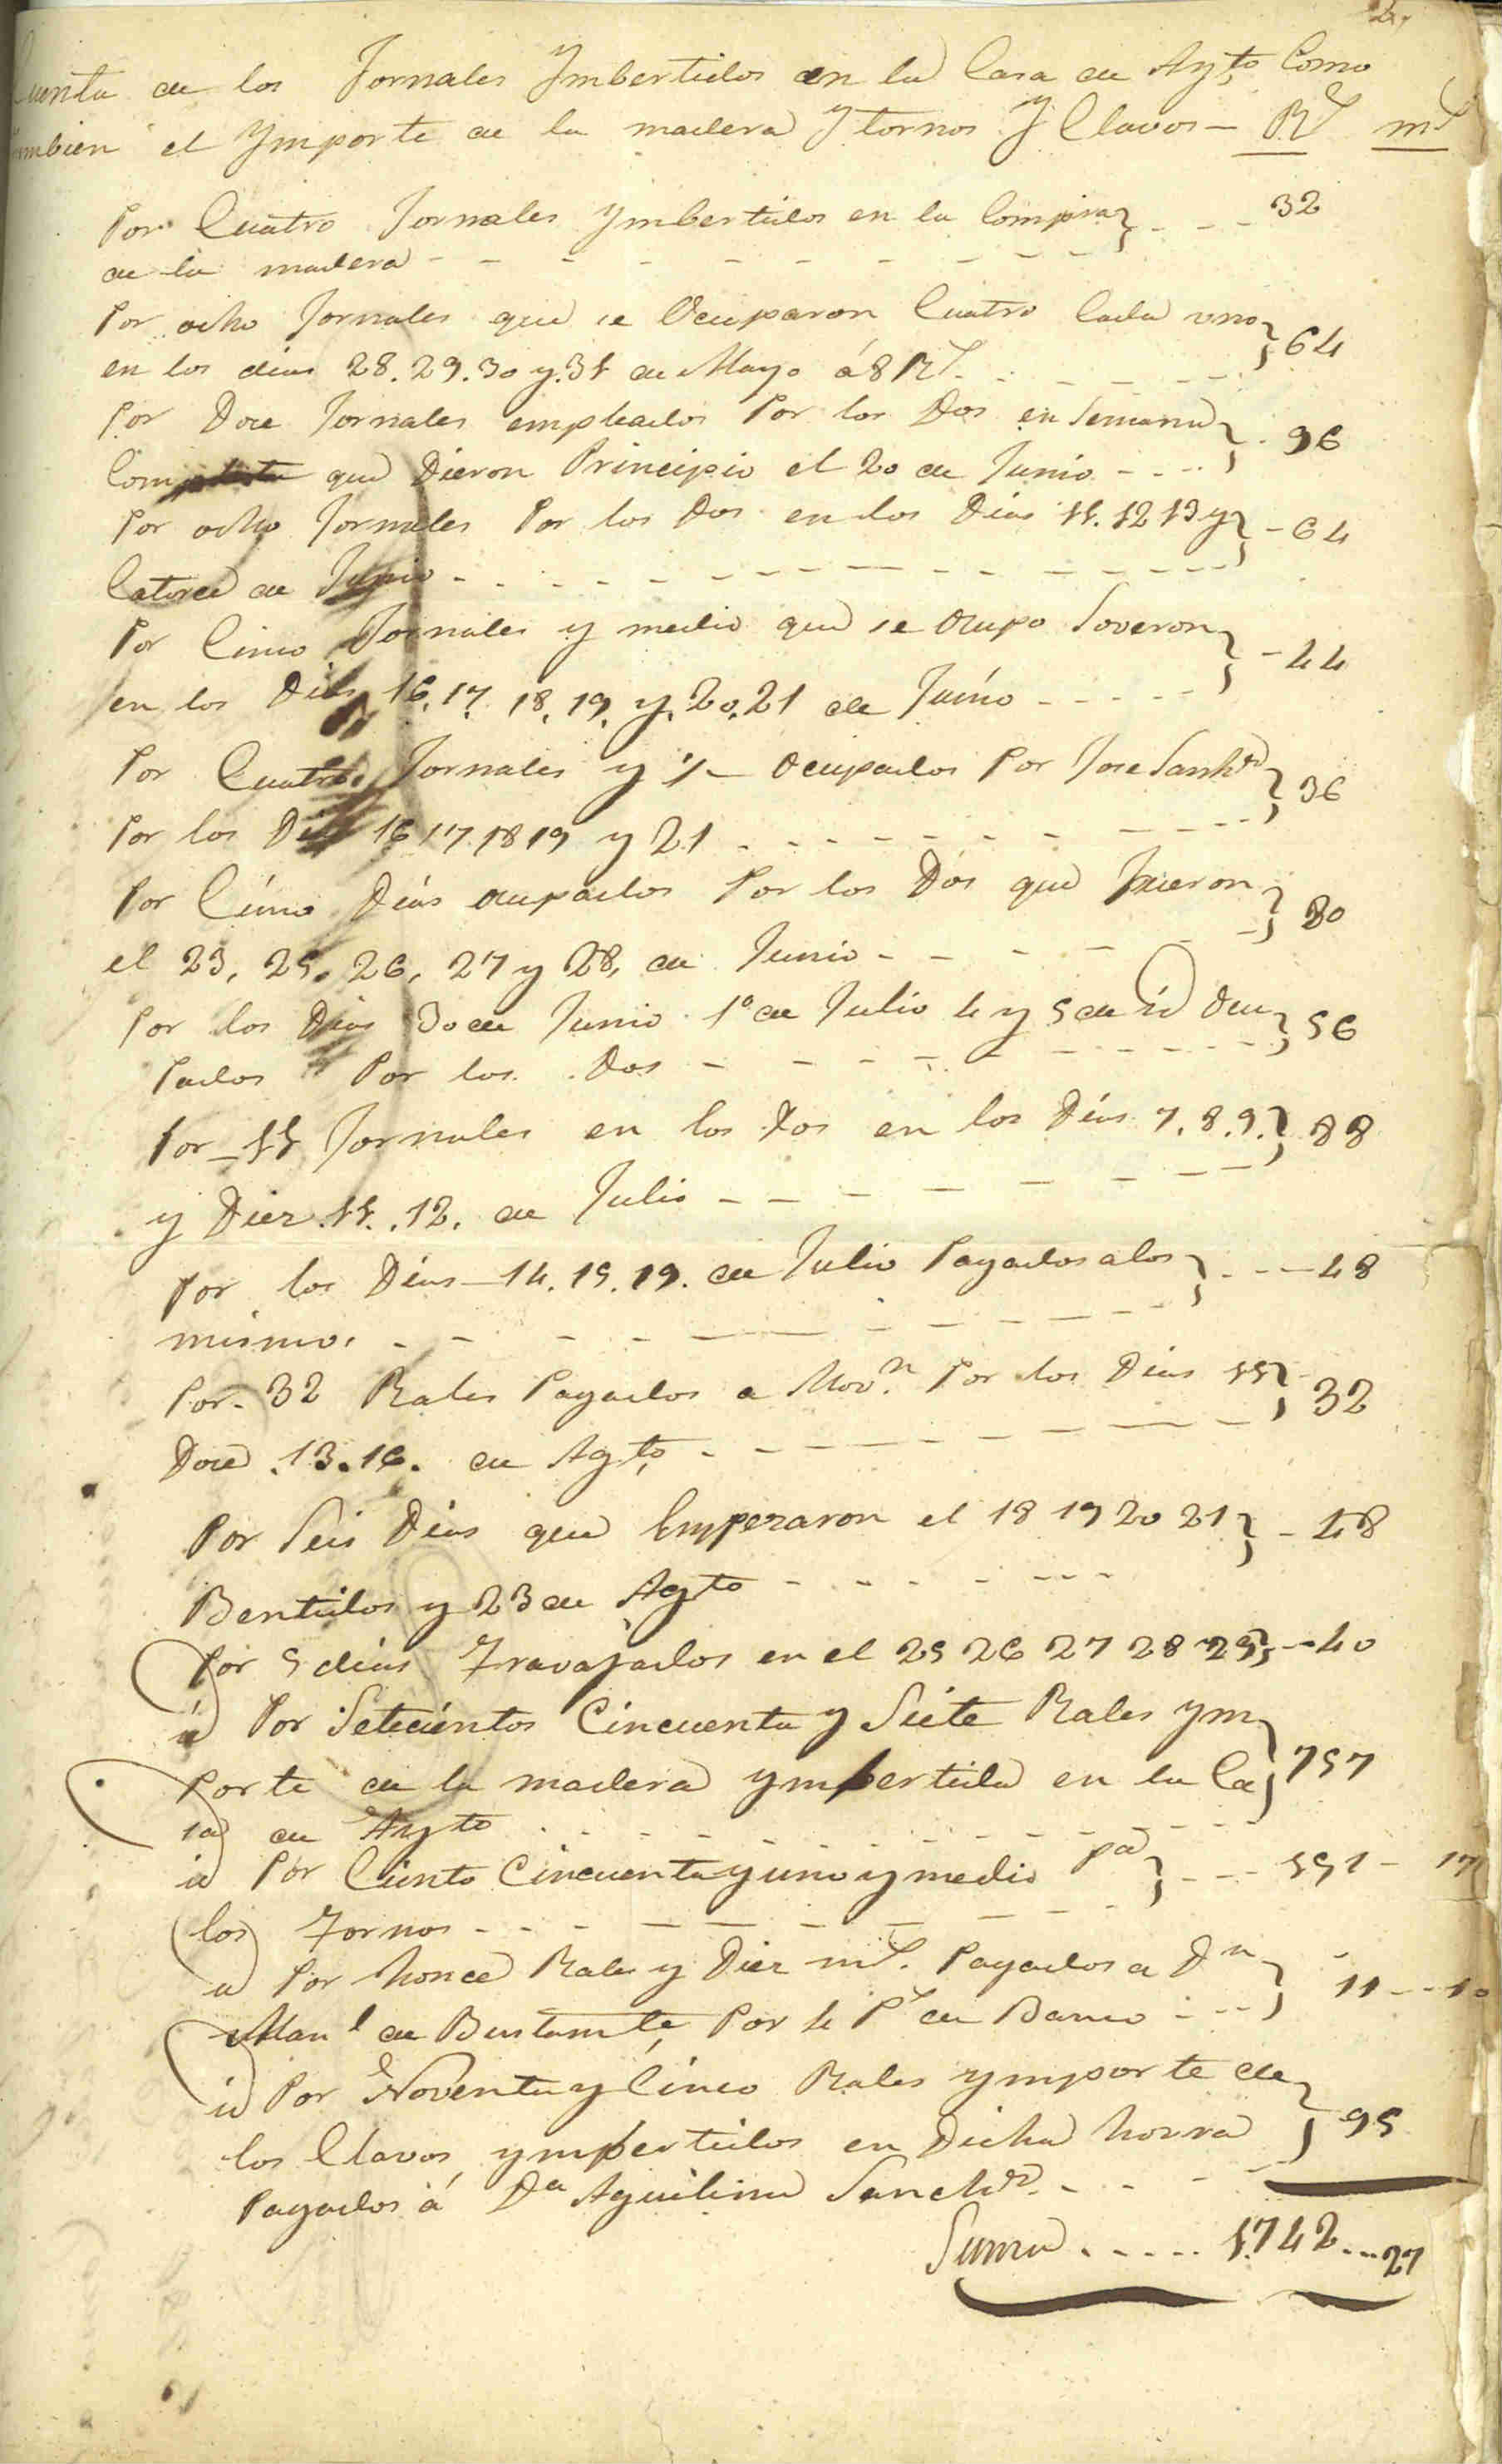 Cuenta de los Jornales Ymbertidos en la Casa de Ayto Como
tambien el Ymporte de la madera Y tornos Y Clavos — Rs ms
Por Cuatro Jornales Ymbertidos en la Compra } - - - 32
de la madera - - - - - - - - -
Por ocho Jornales que se Ocuparon Cuatro Cada uno } 64
en los dias 28. 29. 30 y. 31 de Mayo á 8 Rs - - - -
Por Doce Jornales empleados Por los Dos en Semana } - 96
Completa que Dieron Principio el 20 de Junio - - - -
Por ocho Jornales Por los Dos en los Dias 11. 12 13 y } - 64
Catorce de Junio - - - - - - - - - -
Por Cinco Jornales y medio que se Ocupo Soveron } - 44
en los Dias 16. 17. 18. 19. y. 20. 21 de Junio - - - - -
Por Cuatro Jornales y ½ — Ocupados Por Jose Sanhz } 36
Por los Dias 16 17 18 19 y 21 - - - - - - - - -
Por Cinco Dias ocupados Por los Dos que Fueron } 80
el 23, 25. 26, 27 y 28, de Junio - - - - - -
Por los Dias 30 de Junio 1º de Julio 4 y 5 de id Ocu } 56
Pados Por los Dos - - - - - - - - -
Por — 11 Jornales en los Dos en los Dias 7. 8. 9. } 88
y Diez . 11. . 12. de Julio - - - - - - -
Por los Dias — 14. 15. 19. de Julio Pagados a los } - - - 48
mismos. - - - - - - - - - -
Por. 32 Rales Pagados a Mov.n Por los Dias 11 } 32
Doce . 13. 16. de Agto - - - - - - - -
Por Seis Dias que Empezaron el 18 19 20 21 } - 48
Bentidos y 23 de Agto - - - - - - -
Por 5 dias Travajados en el 25 26 27 28 29 } - - 40
id Por Setecientos Cincuenta y Siete Rales ym } 757
Porte de la madera ymbertida en la Ca
sa de Ayto - - - - - - - - -
id Por Ciento Cincuenta y uno y medio pa } - - - 151 - 17
los Tornos - - - - - - - -
id Por honce Rales y Diez ms. Pagados a Dn } 11 - - 10
Manl de Bustamte, Por 4 Ps de Banco - - -
id Por Noventa y Cinco Rales ymporte de } 95
los Clavos ymbertidos en Dicha hovra
Pagados á Da Aguilina Sanchz. - - - -
Suma . - - - - 1.742 - - 27